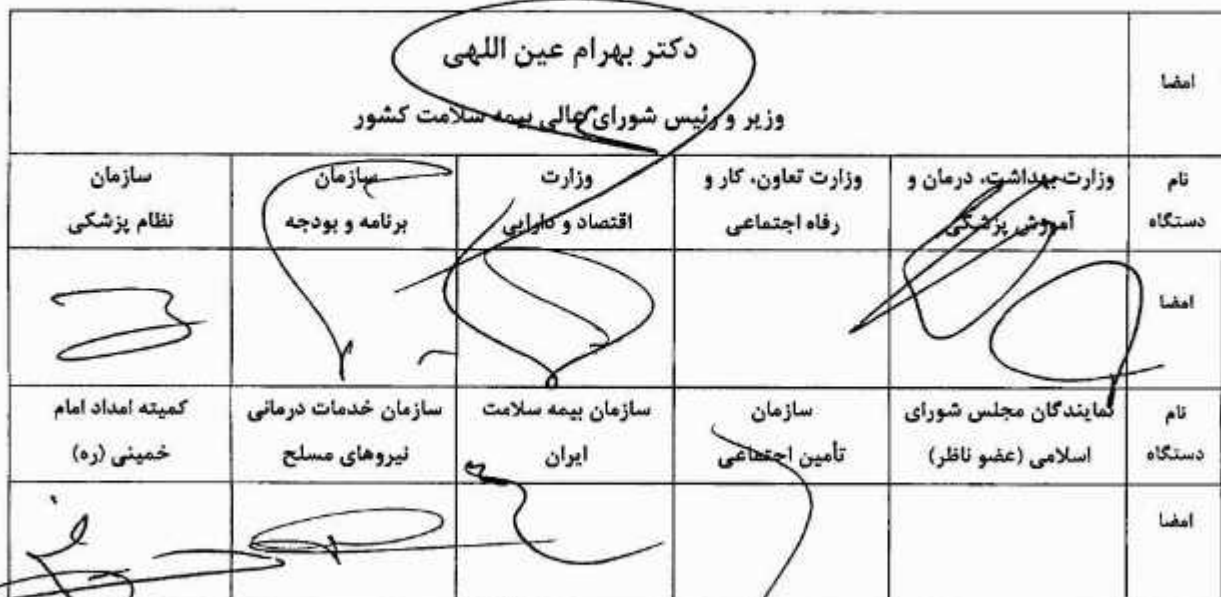 امضا
دکتر بهرام عین اللهی
وزیر و رئیس شورای عالی بیمه سلامت کشور
نام دستگاه
وزارت بهداشت، درمان و
آموزش پزشکی
وزارت تعاون، کار و
رفاه اجتماعی
وزارت
اقتصاد و دارایی
سازمان
برنامه و بودجه
سازمان
نظام پزشکی
امضا
نام دستگاه
نمایندگان مجلس شورای
اسلامی (عضو ناظر)
سازمان
تأمین اجتماعی
سازمان بیمه سلامت
ایران
سازمان خدمات درمانی
نیروهای مسلح
کمیته امداد امام
خمینی (ره)
امضا